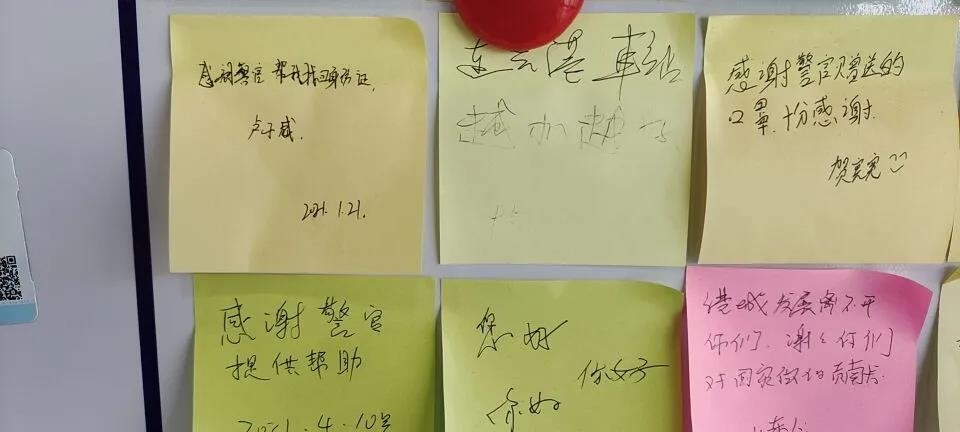 感谢警官帮我找回身份证,
卢子威.
2021.1.21.
连云港車站
越加越好
感谢警官赠送的
口罩,十份感谢.
贺亮亮
感谢警官
提供帮助
2021.4.10号
您好
你好
你好
港城发展离不开
你们,谢谢你们
对国家做的贡献.